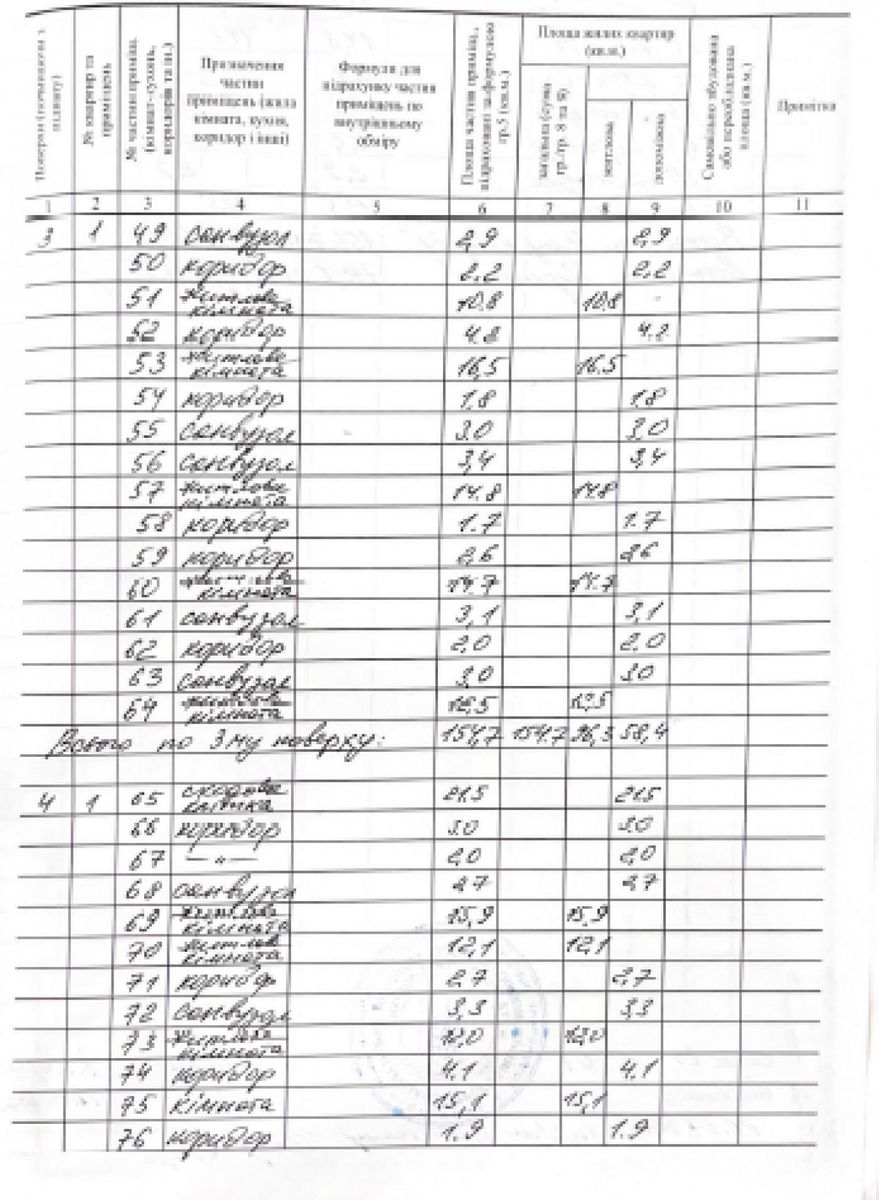 Поверхи (починаючи з підвалу)
№ квартир та приміщень
№ частин приміщ. (кімнат-кухонь, коридорів та ін.)
Призначення частин приміщень (жила кімната, кухня, коридор і інші)
Формули для підрахунку частин приміщень по внутрішньому обміру
Площа частин приміщ., підрахованні за формулою гр.5 (кв.м.)
Площа жилих квартир (кв.м.)
загальна (сума гр./гр. 8 та 9)
житлова
допоміжна
Самовільно збудована або переобладнана площа (кв.м.)
Примітка
1 2 3 4 5 6 7 8 9 10 11
3 1 49 санвузол 2,9 2,9
50 коридор 2.2 2,2
51 житлова кімната 10.8 10.8 -
52 коридор 4.2 4.2
53 житлова кімната 16,5 16.5
54 коридор 1.8 1.8
55 санвузол 3,0 3,0
56 санвузол 3,4 3,4
57 житлова кімната 14.8 14.8
58 коридор 1.7 1.7
59 коридор 2,6 2,6
60 житлова кімната 14.7 14.7
61 санвузол 3,1 3,1
62 коридор 2,0 2,0
63 санвузол 3,0 3,0
64 житлова кімната
Всього по 3му поверху: 154,7 154.7 96,3 58,4
4 1 65 сходова клітка 21.5 21.5
66 коридор 3.0 3.0
67 —"— 2,0 2,0
68 санвузол 2.7 2.7
69 житлова кімната 15,9 15,9
70 житлова кімната 12,1 12,1
71 коридор 2,7 2,7
72 санвузол 3,3 3,3
73 житлова кімната
74 коридор 4.1 4.1
75 кімната 15,1 15,1
76 коридор 1.9 1.9